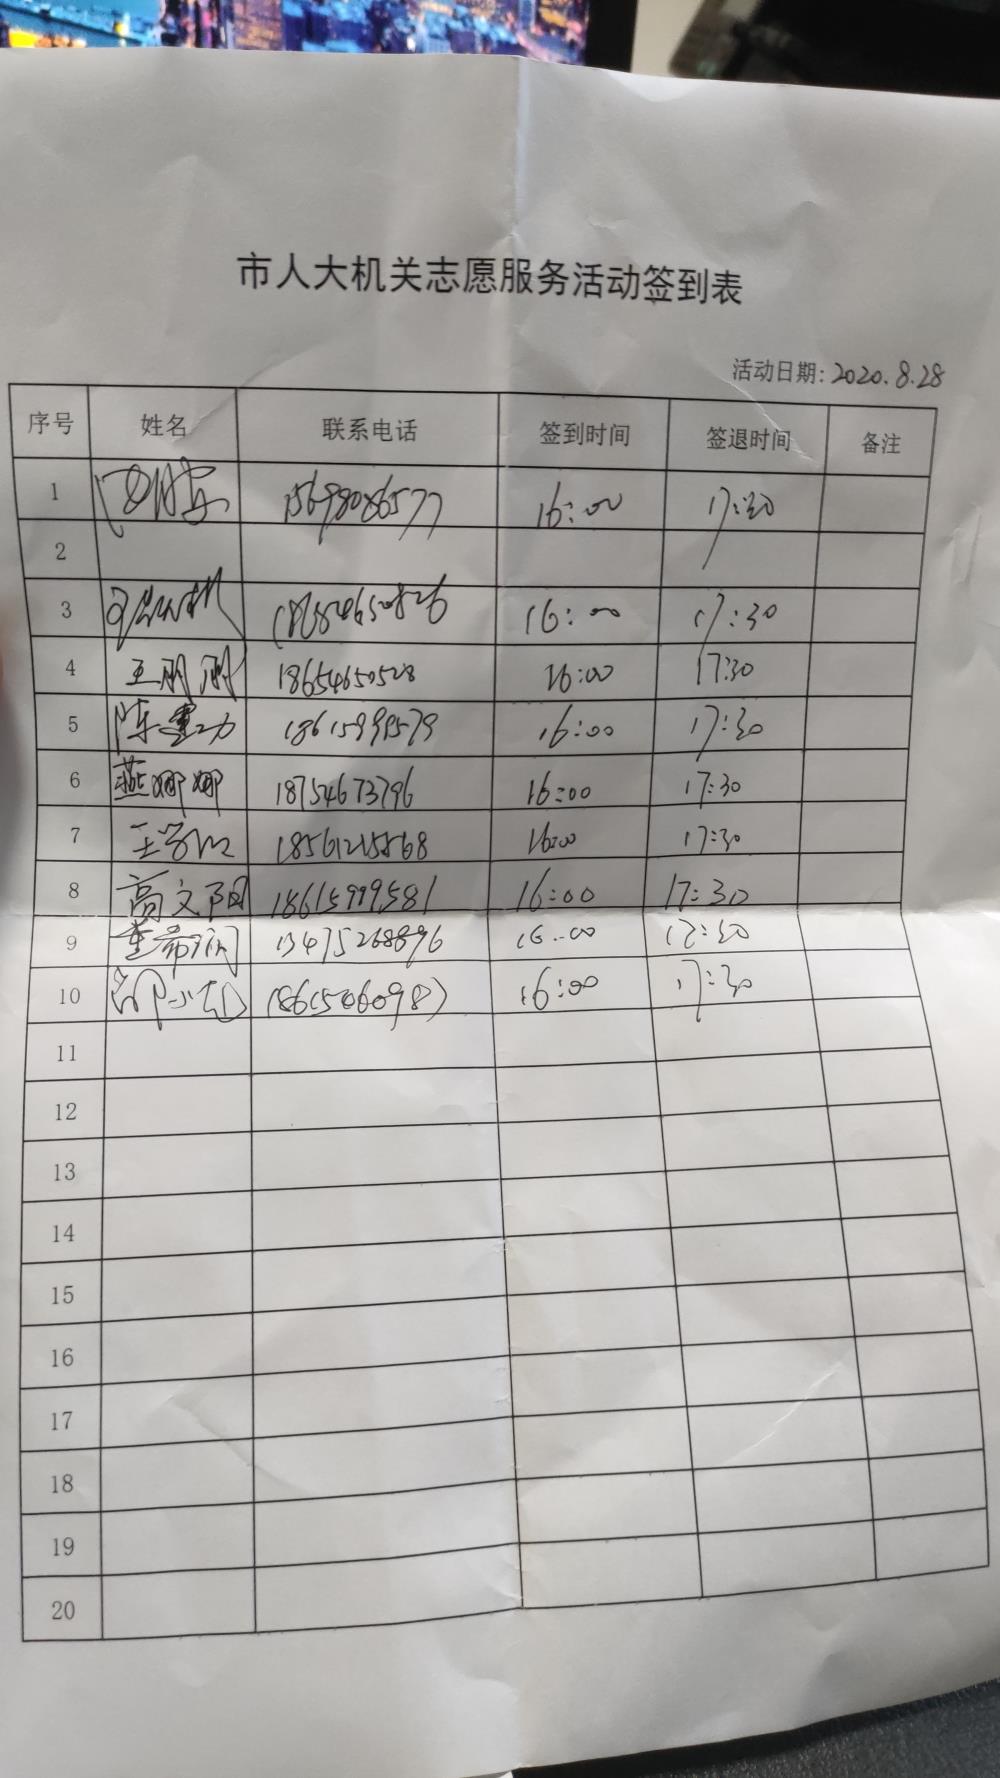 市人大机关志愿服务活动签到表
活动日期: 2020.8.28
序号 姓名 联系电话 签到时间 签退时间 备注
1 15698086577 16:00 17:30
2
3 16:00 17:30
4 王丽丽 18654650528 16:00 17:30
5 陈建功 18615999579 16:00 17:30
6 燕娜娜 18754673796 16:00 17:30
7 18561215868 16:00 17:30
8 高文阳 18615999581 16:00 17:30
9 13475268896 16:00 17:30
10 16:00 17:30
11
12
13
14
15
16
17
18
19
20